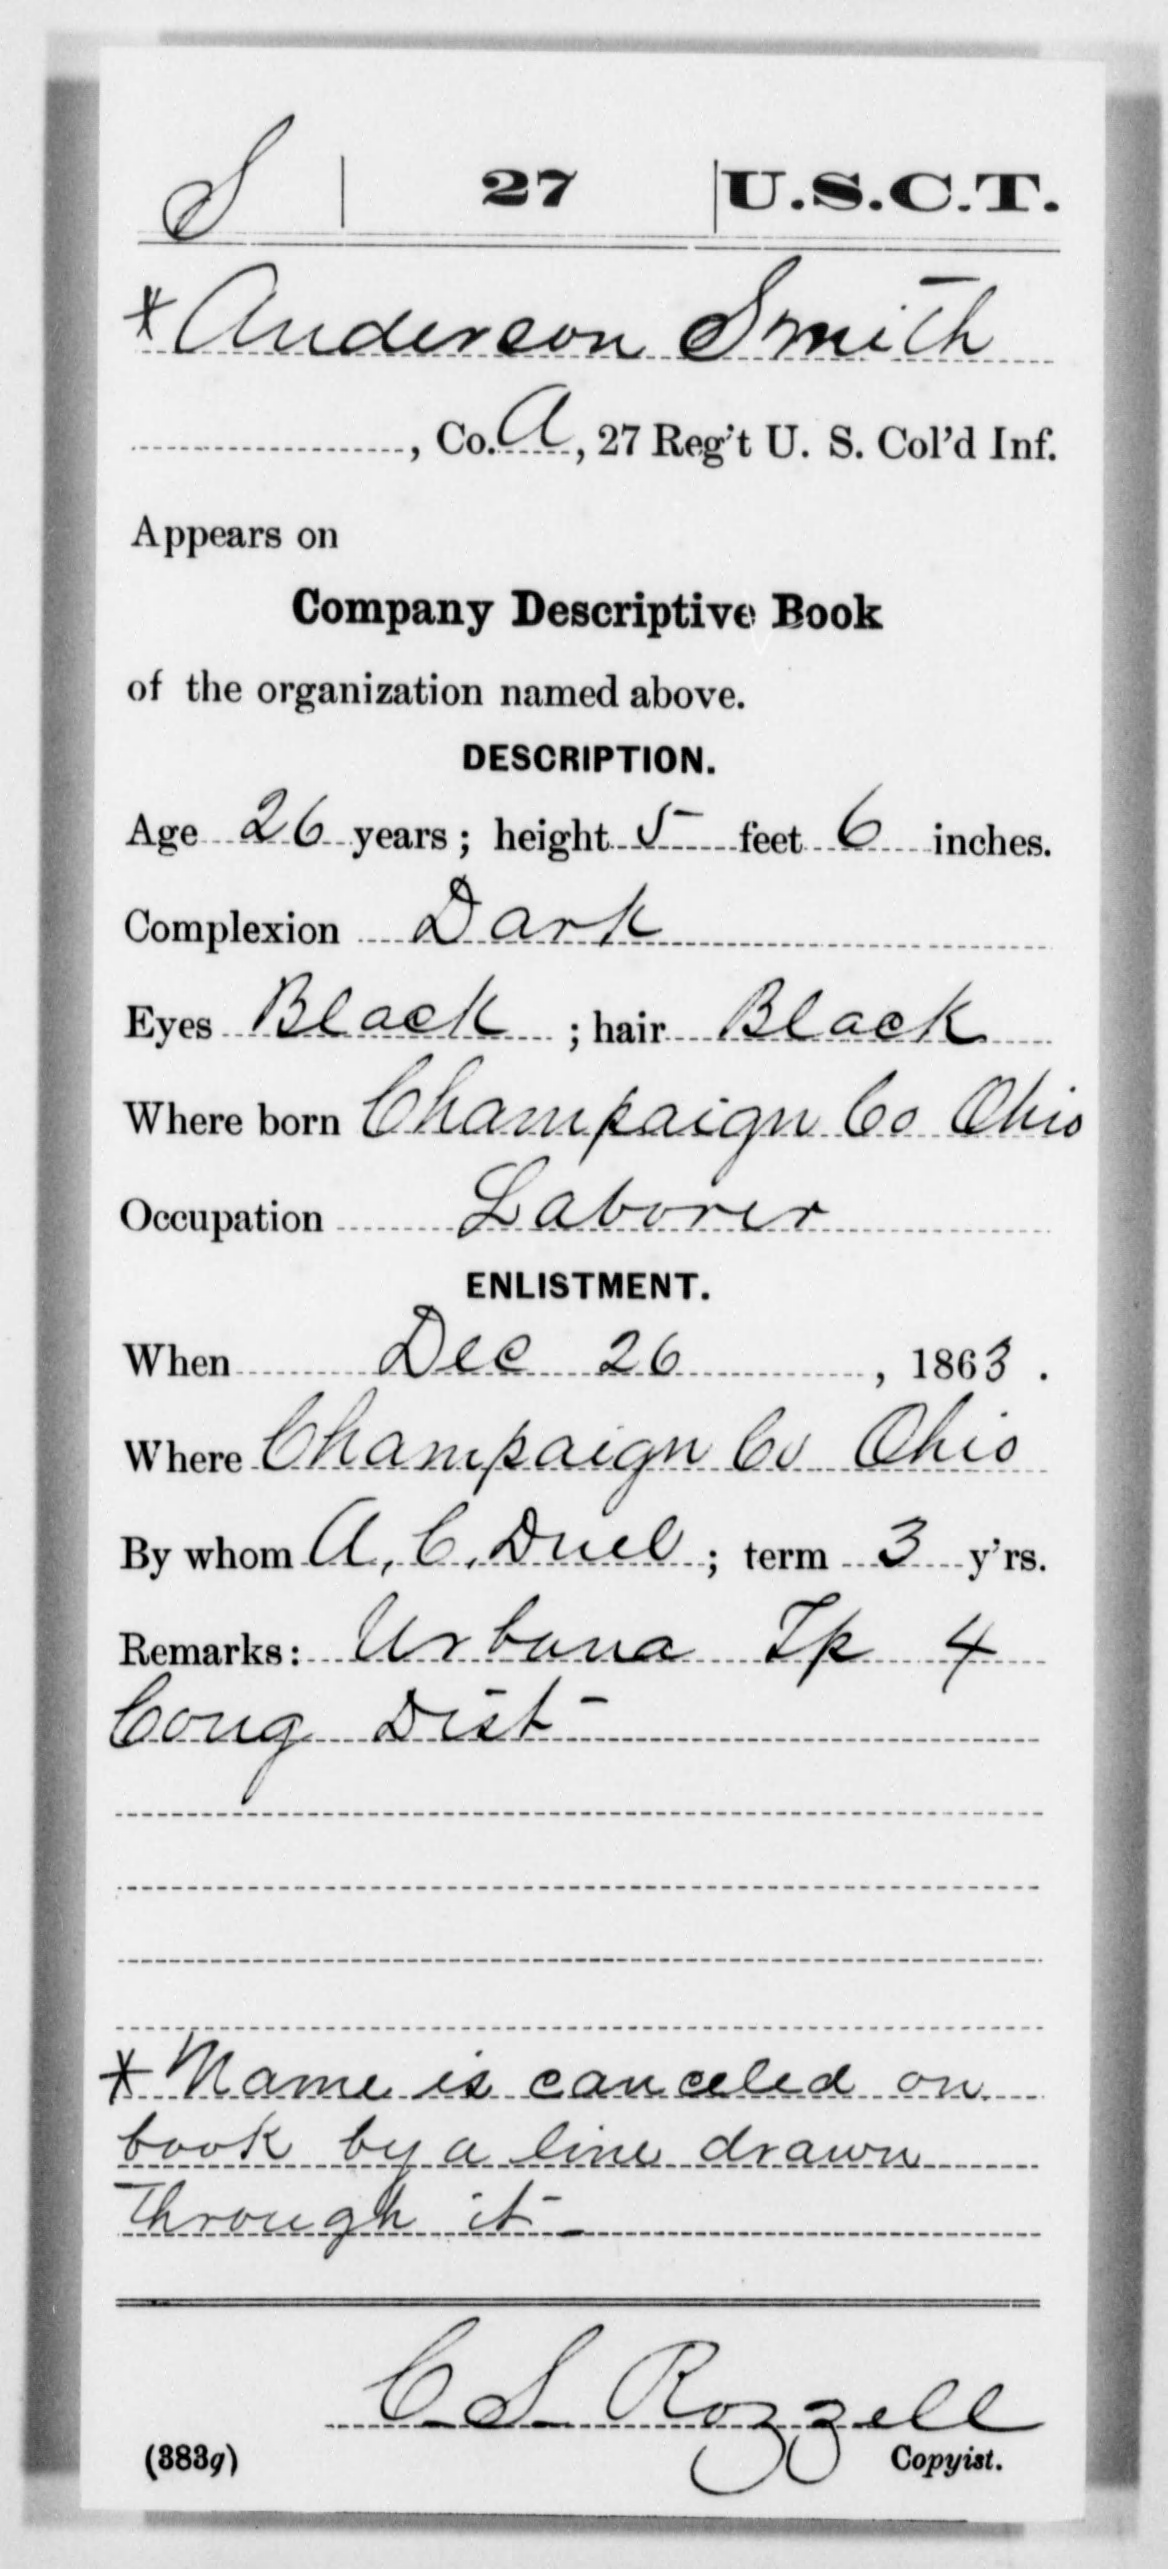 S | 27 | U.S.C.T.
* Anderson Smith
, Co. A, 27 Reg't U. S. Col'd Inf.
Appears on
Company Descriptive Book
of the organization named above.
DESCRIPTION.
Age 26 years; height 5 feet 6 inches.
Complexion Dark
Eyes Black; hair Black
Where born Champaign Co Ohio
Occupation Laborer
ENLISTMENT.
When Dec 26, 1863.
Where Champaign Co Ohio
By whom A. C. Duel; term 3 y'rs.
Remarks: Urbana Tp 4
Cong Dist
* Name is canceled on
book by a line drawn
through it
C S Rozzell
(383g) Copyist.